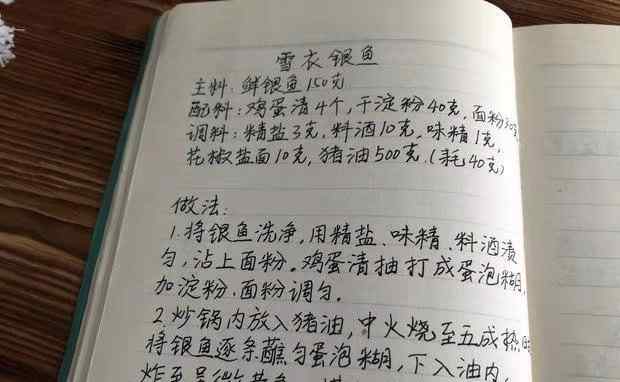 雪衣银鱼
主料:鲜银鱼150克
配料:鸡蛋清4个,干淀粉40克,面粉
调料:精盐3克,料酒10克,味精1克,
花椒盐面10克,猪油500克.(耗40克)
做法:
1.将银鱼洗净,用精盐、味精、料酒渍
匀,沾上面粉。鸡蛋清抽打成蛋泡糊,
加淀粉、面粉调匀。
2.炒锅内放入猪油,中火烧至五成热时
将银鱼逐条蘸匀蛋泡糊,下入油内,
炸至呈微黄色